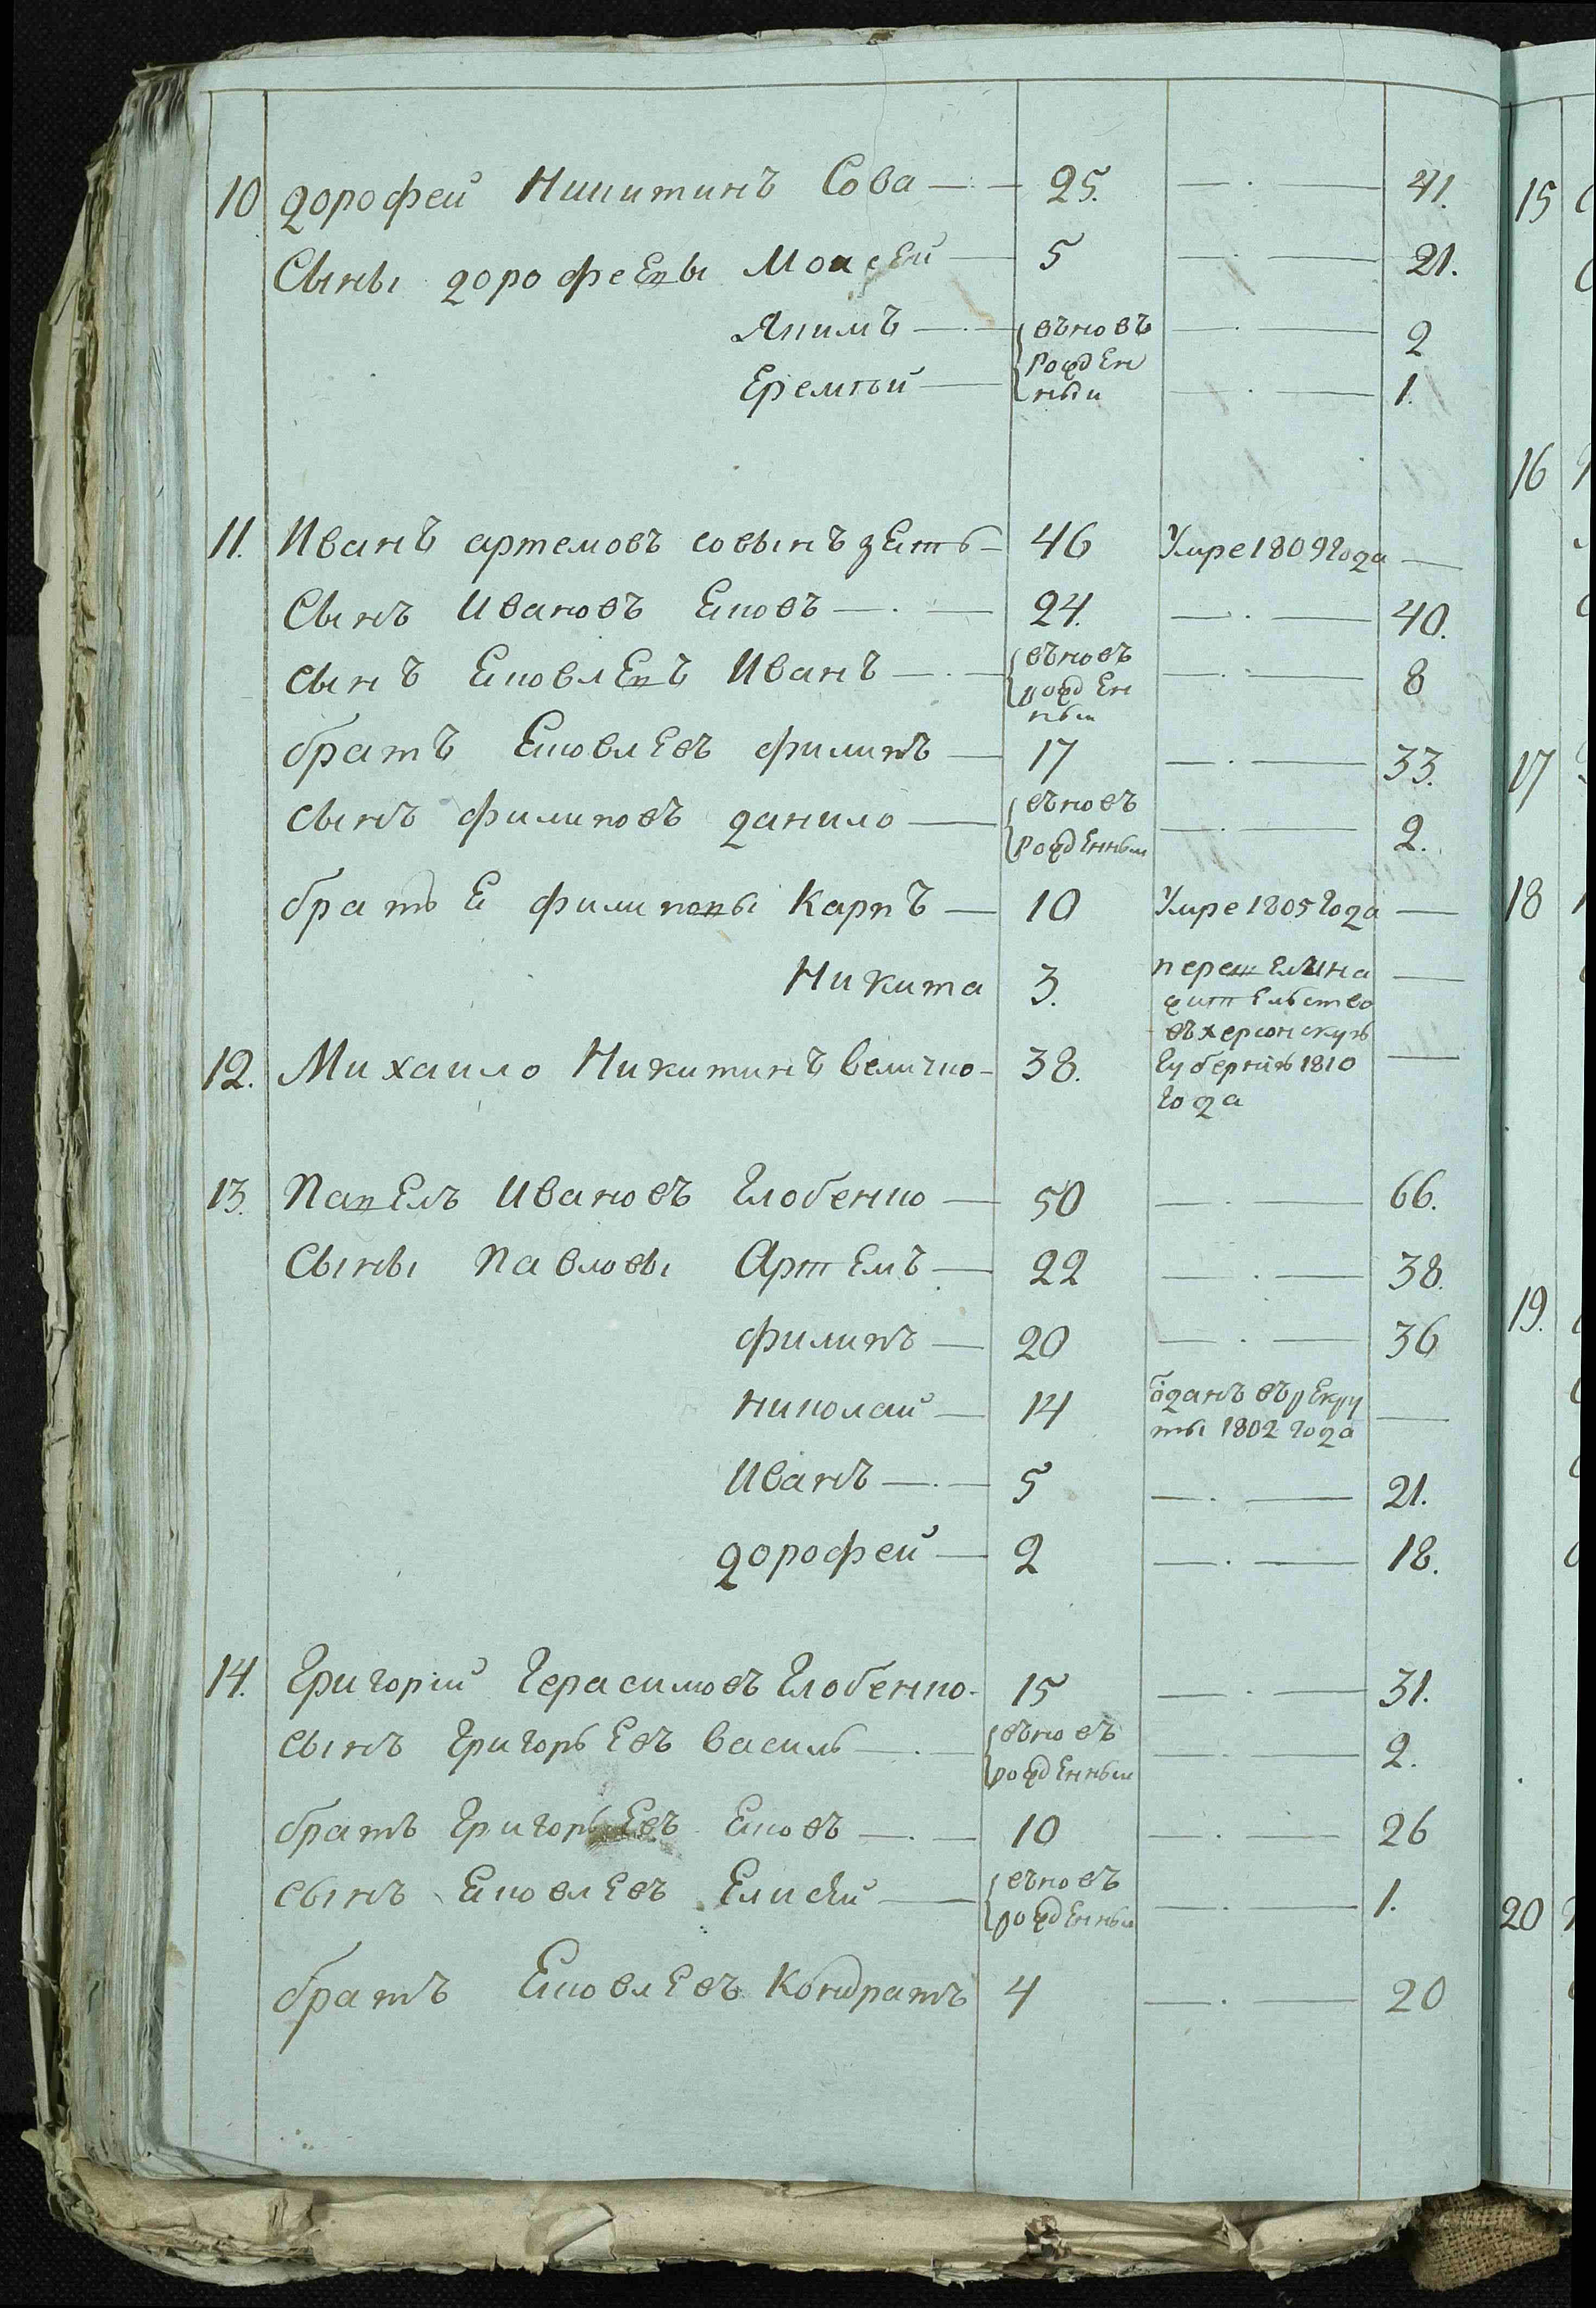 10 дорофей Никитинъ Сова — · — 25. — · — 41.
Сыны дорофеевы Моисей — 5 — · — 21.
Якимъ — · — вновь — · — 2
рожден
Еремѣй — ныи — · — 1.
11. Иванъ артемовъ совынъ зеть — 46 Умре 1809 года —
Сынъ Ивановъ Ековъ — · — 24. — · — 40.
сынъ Ековлевъ Иванъ — · — вновь — · — 8
рожден
ныи
братъ Ековлевъ филипъ — 17 — · — 33.
сынъ филиповъ данило — вновь — · — 2.
рожденныи
братъЕ филиповы Карпъ — 10 Умре 1805 года —
Никита 3. перешелина —
жительство
въ херсонскую
12. Михаило Никитинъ величко — 38. губернію 1810 —
года
13. Павелъ Ивановъ Глобенко — 50 — · — 66.
Сыны Павловы Артемъ — 22 — · — 38.
филипъ — 20 — · — 36
николай — 14 ѿданъ въ рекру —
ты 1802 года
Иванъ — · — 5 — · — 21.
дорофей — 2 — · — 18.
14. Григорій Герасимовъ Глобенко — 15 — · — 31.
сынъ Григорьевъ василь — · — вновь — · — 2.
рожденныи
братъ Григорьевъ Ековъ — · — 10 — · — 26
сынъ Ековлевъ Елисей — вновь — · — 1.
рожденныи
братъ Ековлевъ Кондратъ 4 — · — 20
15
16
17
18
19.
20